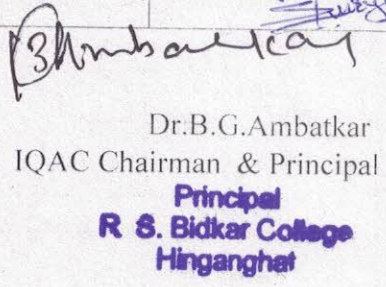 BAmbatkar
Dr.B.G.Ambatkar
IQAC Chairman & Principal
Principal
R S. Bidkar College
Hinganghat